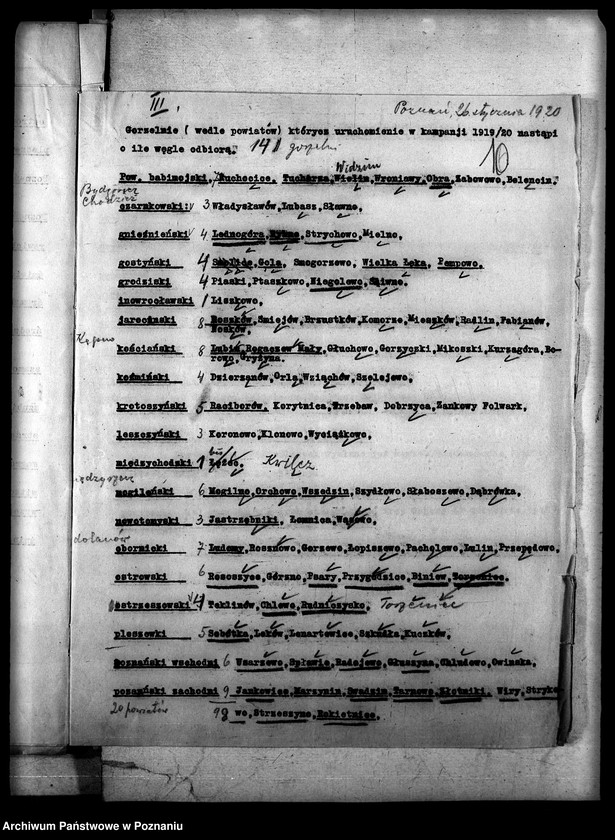 III.
Poznań, 26 stycznia 1920
Gorzelnie ( wedle powiatów) których uruchomienie w kampanji 1919/20 nastąpi
o ile węgle odbiorą. 141 gorzelni
10
Widzim
Pow. babimojski, Ruchocice, Tuchorza, Wielin, Wroniawy, Obra, Zabowowo, Belencin.
Bydgoszcz
Chodzież
czarnkowski: 3 Władysławów, Lubasz, Sławno,
gnieźnieński 4 Lednogóra, Strychowo, Mielno,
gostyński 4 Gola, Smogorzewo, Wielka Łęka, Pempowo.
grodziski 4 Piaski, Ptaszkowo, Niegolewo, Śliwno,
inowrocławski 1 Liszkowo,
jarociński 8 Roszków, Śmiejów, Brzustków, Komorze, Mieszków, Radlin, Fabianów,
Noszków,
Kępno
kościański 8 Lubiń, Rogaczew Mały, Głuchowo, Gorzyczki, Mikoszki, Kurzagóra, Bo-
rowo, Gryżyna.
koźmiński 4 Dzierżanów, Orla, Wziąchów, Szelejewo,
krotoszyński 5 Raciborów, Korytnica, Trzebaw, Dobrzyca, Zamkowy Folwark,
leszczyński 3 Karonowo, Klonowo, Wyciążkowo,
międzychodski 1 Kwilcz
mogileński 6 Mogilno, Orchowo, Wszedzin, Szydłowo, Słaboszewo, Dąbrówka,
nowotomyski 3 Jastrzębniki, Łomnica, Wąsowo,
obornicki 7 Ludomy, Rosznowo, Gorzewo, Łopiszewo, Pacholewo, Lulin, Przependowo,
ostrowski 6 Rososzyca, Górzno, Psary, Przygodzice, Biniew,
ostrzeszowski 4 Teklinów, Chlewo, Rudniczysko,
pleszewski 5 Sobótka, Leków, Lenartowice, Szkudła, Kuczków,
Poznański wschodni 6 Uzarzewo, Spławie, Radojewo, Głuszyna, Chludowo, Owińska,
poznański zachodni 9 Jankowice, Marzynin, Swadzin, Tarnowo, Złotniki, Wiry, Stryko-
20 powiatów
98 wo, Strzeszyno, Rokietnica.
Archiwum Państwowe w Poznaniu